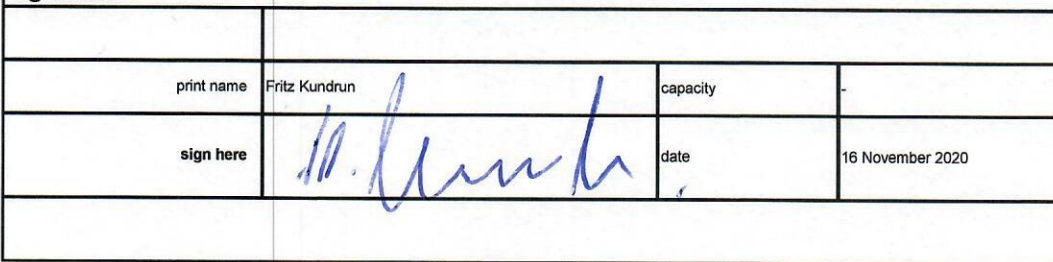 print name Fritz Kundrun capacity -
sign here date 16 November 2020